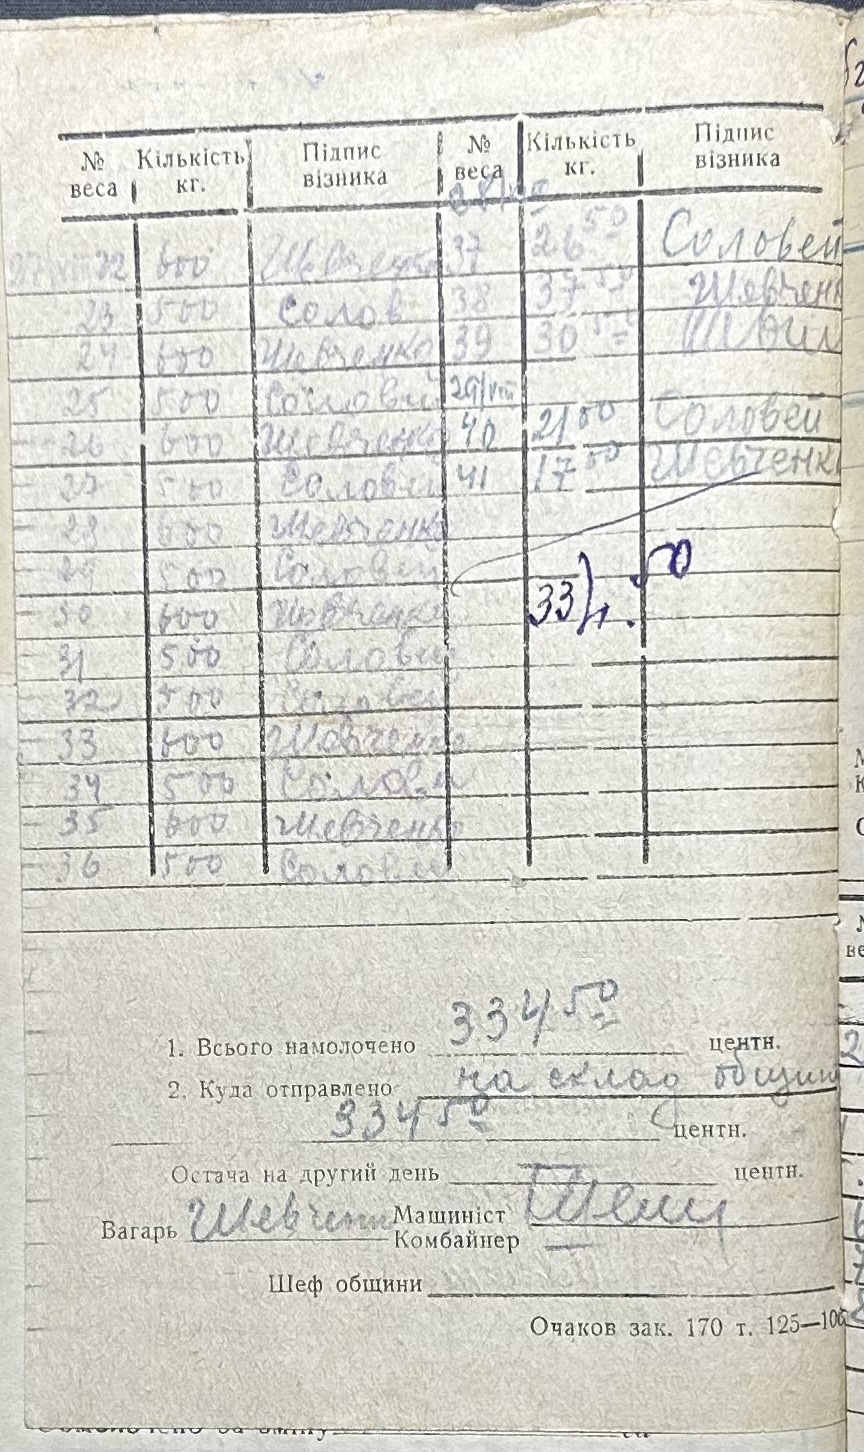 № веса Кількість кг. Підпис візника № веса Кількість кг. Підпис візника
28/VIII
27/VIII 22 600 Шевченко 37 26 50 Соловей
23 500 Солов 38 37 50 Шевченк
24 600 Шевченко 39 30 50
25 500 Соловей 29/VIII
26 600 Шевченко 40 21 00 Соловей
27 500 Соловей 41 17 00 Шевченк
28 600 Шевченко
29 500 Соловей
30 600 Шевченко 334.50
31 500 Соловей
32 500 Соловей
33 600 Шевченко
34 500 Соловей
35 600 Шевченко
36 500 Соловей
1. Всього намолочено 334 50 центн.
2. Куда отправлено на склад общин
334 50 центн.
Остача на другий день — центн.
Вагарь Шевченк Машиніст
Комбайнер —
Шеф общини
Очаков зак. 170 т. 125—106